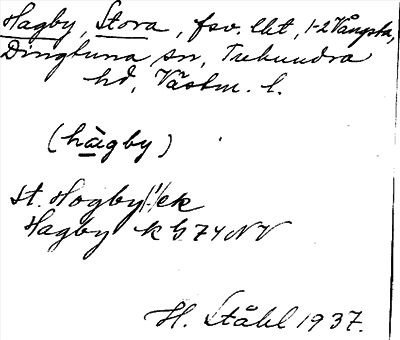 Hagby, Stora, fsv. lht, 1-2 Vångsta,
Dingtuna sn, Tuhundra
hd, Västm. l.
(hàgby)
St. Hogby(!) ek
Hagby k G 74 NV
H. Ståhl 1937.